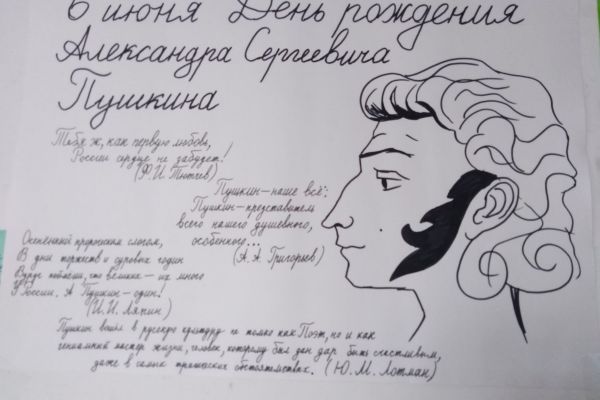 6 июня День рождения
Александра Сергеевича
Пушкина
Тебя ж, как первую любовь,
России сердце не забудет!
(Ф.И. Тютчев)
Пушкин — наше всё:
Пушкин — представитель
всего нашего душевного,
особенного...
(А.А. Григорьев)
Осенённой пророчества слогом,
В дни торжеств и суровых годин
Вдруг поймёшь, что великие — их много
У России. А Пушкин — один!
(И.И. Лямин)
Пушкин вошёл в русскую культуру не только как Поэт, но и как
гениальный мастер жизни, человек, которому был дан дар быть счастливым,
даже в самых трагических обстоятельствах. (Ю.М. Лотман)